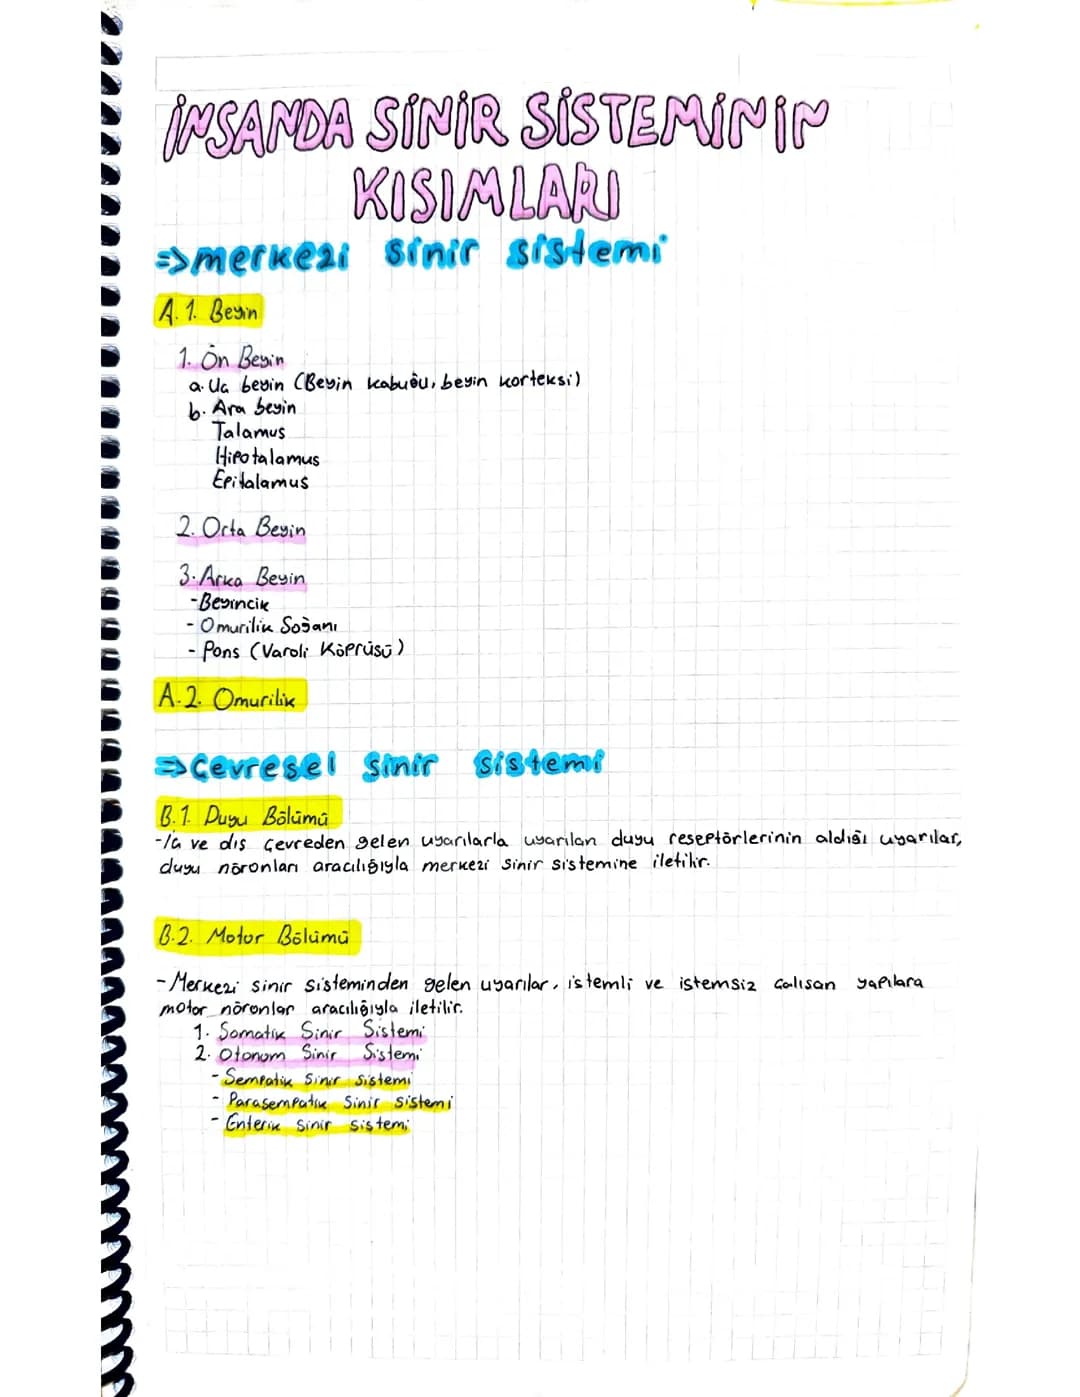 İNSANDA SİNİR SİSTEMİNİN
KISIMLARI
=>merkezi sinir sistemi
A.1. Beyin
1. Ön Beyin
a. Uç beyin (Beyin kabuğu, beyin korteksi)
b. Ara beyin
Talamus
Hipotalamus
Epitalamus
2. Orta Beyin
3. Arka Beyin
-Beyincik
- Omurilik Soğanı
- Pons (Varoli Köprüsü)
A.2. Omurilik
=>Çevresel sinir sistemi
B.1. Duyu Bölümü
-İç ve dış çevreden gelen uyarılarla uyarılan duyu reseptörlerinin aldığı uyarılar,
duyu nöronları aracılığıyla merkezi sinir sistemine iletilir.
B.2. Motor Bölümü
-Merkezi sinir sisteminden gelen uyarılar, istemli ve istemsiz çalışan yapılara
motor nöronlar aracılığıyla iletilir.
1. Somatik Sinir Sistemi
2. Otonom Sinir Sistemi
- Sempatik Sinir sistemi
- Parasempatik Sinir sistemi
- Enterik sinir sistemi